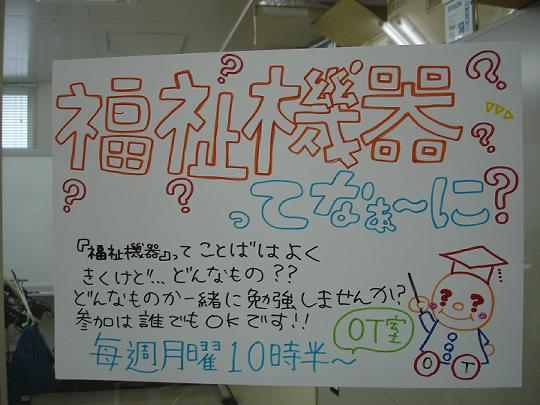 福祉機器
ってなぁ〜に?
『福祉機器』ってことばはよく
きくけど‥‥どんなもの??
どんなものか一緒に勉強しませんか?
参加は誰でもOKです!!
毎週月曜10時半〜
OT室
OT
EPSON